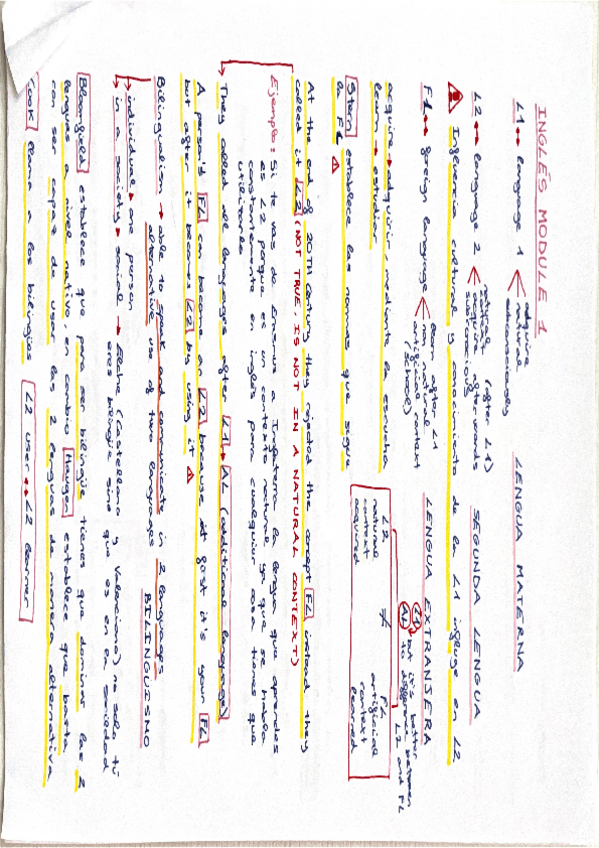 INGLÉS MODULE 1
L1 ↔ language 1 < adquire
natural
subconsciously
LENGUA MATERNA
L2 ↔ language 2 < natural (after L1)
context afterwards
acquire
subconscious
SEGUNDA LENGUA
⚠ Influencia cultural y conocimiento de la L1 influye en L2
FL ↔ foreign language < learn after L1
non natural
artificial context
(School)
LENGUA EXTRANJERA
L1
AL but it's better
to difference between
L2 and FL
acquire → adquirir, mediante la escucha
learn → estudiar
L2 ≠ FL
natural artificial
context context
acquired learned
Stern establece las normas que sigue
la FL ⚠
At the end of 20TH Century they rejected the concept FL instead they
called it L2 (NOT TRUE, IS NOT IN A NATURAL CONTEXT)
Ejemplo: Si te vas de Erasmus a Inglaterra la lengua que aprendes
es L2 porque es un contexto natural ya que se habla
constantemente en inglés para cualquier cosa tienes que
utilizarla
→ They called all languages after L1 → AL (additional language)
A person's FL can become an L2 because at first it's your FL
but after it becomes L2 by using it ⚠
Bilingualism → able to speak and communicate in 2 languages
alternative use of two languages
BILINGUISMO
→ individual → one person
→ in a society → social → Elche (Castellano y Valenciano) no solo tú
eres bilingüe sino que es en la sociedad
Bloomfield establece que para ser bilingüe tienes que dominar las 2
lenguas a nivel nativo, en cambio Haugen establece que basta
con ser capaz de usar las 2 lenguas de manera alternativa
Cook llama a los bilingües L2 user ↔ L2 learner